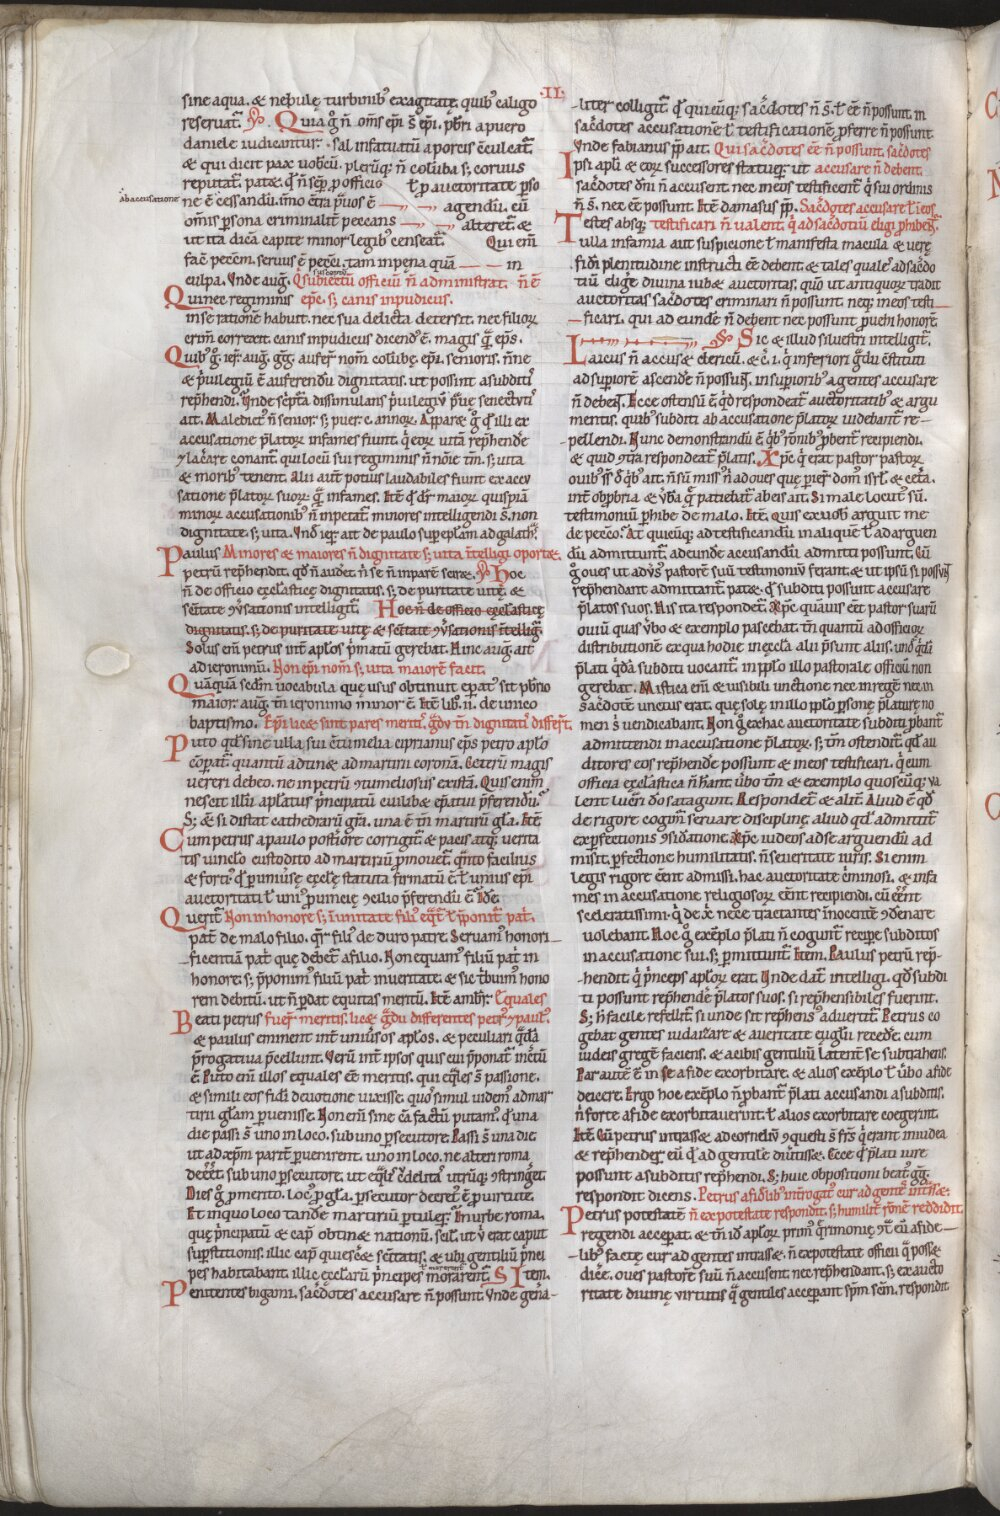 ·II·
sine aqua. & nebulę turbinib; exagitatę. quib; caligo
reseruat̃. Quia g̊ ñ om̃s ep̃i s̃ ep̃i. p̃bri a puero
daniele iudicantur. sal infatuatũ a porcis c̃culcat̃.
& qui dicit pax uobcũ. plerũq; ñ colũba s; coruus
reputat̃. patæ q̃ ñ sẽp p officio ł p auctoritate p̱so
Ab accusatione
nę ẽ cessandũ. ĩmo c̃tra p̱uos ẽ agendũ. cũ
om̃is p̱sona criminalit̃ peccans alteret̃. &
ut ita dicã capite minor legib; censeat̃. Qui em̃
facit peccm̃. seruus ẽ peccti. tam in pena quã in
culpa. Vnde aug̃. Qsubiectũ officiũ ñ administrat. ñ ẽ
Qui nec regiminis ep̃c. s; canis inpudicus.
in se rationẽ habuit. nec sua delicta detersit. nec filior̃
crim̃ correxit. canis inpudicus dicend; ẽ. magis q̃ ep̃s.
Quib; g̊. ier̃. aug̃. g̃g̃. aufer̃ nom̃ colũbę. ep̃i. senioris. ñne
& p̃uilegiũ ẽ auferendũ dignitatis. ut possint a subditis
rep̃hendi. Vnde sc̃pta dissimulans p̃uilegiũ p̃uę senectuti
ait. Maledict; ñ senior. s; puer. c. annor̃. Apparæ g̊ q̃ illi ex
accusatione p̃lator̃ infames fiunt. q̃ eor̃ uitã rep̃hende
& lac̃are conant̃. qui locũ sui regiminis ñ nõie tm̃. s; uita
& morib; tenent. Alii aut̃ potius laudabiles fiunt ex accu
satione p̃lator̃ suor̃. q̃ infames. Itẽ q̃ dr̃ maior̃ quispiã
minor̃ accusationib; ñ inpetat̃. minores intelligendi s̃. non
dignitate. s; uita. Vnd̃ ier̃. ait de paulo sup epl̃am ad galath.
Paulus Minores & maiores ñ dignitate s; uita ĩtelligi oportæ.
petrũ rep̃hendit. qd̃ ñ audet. ñ se ñ inparẽ sciræ. Hoc
ñ de officio ecclesiasticę dignitatis. s; de puritate uitę &
sc̃itate c̃uersationis intelligit̃. Hoc ñ de officio ecclasticę
dignitatis. s; de puritate uitę & sc̃itate c̃uersationis ĩtelligit̃.
Solus em̃ petrus int̃ aplos p̃matũ gerebat. Hinc aug̃. ait
ad ieronimũ. Non ep̃i nom̃ s; uita maiorẽ facit.
Quãquã sedm̃ uocabula quę usus obtinuit ep̃at; sit p̃brio
maior. aug̃. tm̃ ieronimo minor ẽ. Itẽ lib̃. ii. de unico
baptismo. Ep̃i licæ sint pares meriti. gradu tm̃ dignitatis differt.
Puto qd̃ sine ulla sui c̃tumelia ciprianus ep̃s petro aplo
c̃parat̃. quantũ adtinæ ad martirii coronã. Ceterũ magis
uereri debeo. ne in petrũ c̃tumeliosus existã. Quis enim
nescit illũ aplatus p̃ncipatũ cuilibæ ep̃atui p̃ferendũ.
S; & si distat cathedrarũ gr̃a. una ẽ tm̃ martirũ gl̃a. Itẽ
Cum petrus a paulo postriore corrigit̃. & pacis atq; unita
tis uinclo custodito ad martiriũ p̃mouet̃. q̃nto facilius
& forti; q̃ p uniuersę ecclę statuta firmatũ ẽ. ł unius ep̃i
auctoritati ł uni; puincię c̃cilio p̃ferendũ ẽ. Idẽ.
Querit̃ Non in honore s; ĩ unitate filii equat̃ ł p̃ponit̃ pat̃.
pat̃ de malo filio. q̃r̃ fili; de duro patre. Seruam; honori
ficentiã pat̃ quę debet̃ a filio. Non equam; filiũ pat̃ in
honore. s; p̃ponim; filiũ pat̃ in ueritate. & sic t̃buim; hono
rem debitũ. ut ñ p̱dat equitas meritũ. Itẽ ambr̃. Equales
Beati petrus fuer̃ meritis. licæ gradu differentes petr; & paul;.
& paulus eminent int̃ uniu̾sos aplos. & peculiari q̃dã
p̃rogatiua p̃cellunt. Verũ int̃ ipsos quis cui p̃ponat̃ incẽtũ
ẽ. Puto em̃ illos equales cẽ meritis. qui eq̃les s̃ passione.
& simili eos fidei deuotione uixisse. quos simul uidem; ad mar
tirii gl̃am p̱uenisse. Non em̃ sine cã factũ putam; q̃ una
die passi s̃ uno in loco. sub uno p̱secutore. Passi s̃ una die
ut ad xp̃m parit̃ p̱uenirent. uno in loco. ne alteri roma
deeẽt. sub uno p̱secutore. ut eq̃lis c̃delitas utrũq; c̃stringet̃.
Dies g̊ p merito. loc; p gl̃a. p̱secutor decret; ẽ p uirtute.
Et in quo loco tandẽ martiriũ p̱tuler̃. In urbe roma.
quę p̃ncipatũ & cap̃ obtinæ nationũ. scil̃. ut ubi erat caput
sup̱stitionis. illic cap̃ quiesc̃æ sc̃itatis. & ubi gentiliũ p̃nci
pes habitabant. illic ecclar̃ p̃ncipes morarent̃. Item.
Penitentes bigami. sac̃dotes accusare ñ possunt. Vnde gen̾a
liter colligit̃. q̃ quicũq; sac̃dotes ñ s̃. ł cẽ ñ possunt. in
sac̃dotes accusationẽ ł testificationẽ p̃ferre ñ possunt.
Vnde fabianus pp̃ ait. Qui sac̃dotes cẽ ñ possunt. sac̃dotes
Ipsi apl̃i & eor̃ successores statuer̃ ut accusare ñ debent.
sac̃dotes dñi ñ accusent. nec in eos testificent̃ q̃ sui ordinis
ñ s̃. nec cẽ possunt. Itẽ damasus pp̃. Sac̃dotes accusare ł ĩ eos
Testes absq; testificari ñ ualent. q̃ ad sac̃dotiũ eligi p̱hibent̃.
ulla infamia aut suspicione ł manifesta macula & uerę
fidei plenitudine instructi cẽ debent. & tales quales ad sac̃do
tiũ elig̃e diuina iubæ auctoritas. quo ut antiquor̃ tradit
auctoritas sac̃dotes criminari ñ possunt. neq; in eos testi
ficari. qui ad eundẽ ñ debent nec possunt p̱uehi honorẽ.
Sic & illud siluestri intelligit̃.
Laicus ñ accusæ clericũ. & c̃. i. q̃ inferiori gradu c̃stituti
ad superiorẽ ascende ñ possunt. in superiorib; agentes accusare
ñ debent. Ecce ostensũ ẽ q̃d respondeat̃ auctoritatib; & argu
mentis. quib; subditi ab accusatione p̃lator̃ uidebant̃ re
pellendi. Nunc demonstrandũ ẽ. q̃b; rõnib; p̱bent̃ recipiendi.
& quid c̃tra respondeat̃ p̃latis. Xp̃c q̃ erat pastor pastor̃
ouib; s̃ d̃ q̃b; ait. ñ sũ miss; ñ ad oues quę perier̃ dom; isrl̃. & cẽta.
int̃ obp̱bria & u̾ba q̃ patiebat̃ ab eis ait. Si male locut; sũ.
testimoniũ p̱hibe de malo. Itẽ. Quis ex uob; arguit me
de peccõ. At quicũq; ad testificandũ in aliquẽ ł ad arguen
dũ admittunt̃. ad eũde accusandũ admitti possunt. Cũ
g̊ oues ut adu̾s; pastorẽ suũ testimoniũ ferant. & ut ipsũ si possunt
rep̃hendant admittant̃. patæ. q̃ subditi possunt accusare
p̃latos suos. His ita respondet̃. Xp̃c quãuis c̃et pastor suarũ
ouiũ quas u̾bo & exemplo pascebat. tm̃ quantũ ad officior̃
distributionẽ ex qua hodie in eccla alii p̃sunt aliis. unð q̃dã
p̃lati. q̃dã subditi uocant̃. in ipplo illo pastorale officiũ non
gerebat. Mistica em̃ & uisibili unctione nec in regẽ nec in
sac̃dotẽ unctus erat. quę sole in illo pplo p̱sonę p̃laturę no
men s̃ uendicabant. Non g̊ ex hac auctoritate subditi p̱bant̃
admittendi in accusatione p̃lator̃. s; tm̃ ostendit̃. q̃d au
ditores eos rep̃hende possunt & in eos testificari. q̃ cum
officia ecclastica ñ hñt. u̾bo tm̃ & exemplo quoscũq; ua
lent lucri dõ satagunt. Respondet̃ & alit̃. Aliud ẽ q̃d
de rigore cogim; seruare disciplinę. aliud q̃d admittit̃
ex p̱fectionis c̃sid̃atione. Xp̃c iudeos ad se arguendũ ad
misit. p̱fectione humilitatis. ñ seueritate iuris. Si enim
legis rigore c̃ent admissi. hac auctoritate c̃minosi. & infa
mes in accusatione religiosor̃ c̃ent recipiendi. cũ c̃ent
sceleratissimi. q̃ de xp̃i nece tractantes inocentẽ c̃denare
uolebant. Hoc g̊ exẽplo p̃lati ñ cogunt̃ recipe subditos
in accusatione sui. s; p̱mittunt̃. Item. Paulus petrũ rep̃
hendit. q̃ p̃nceps aplor̃ erat. Vnde dat̃ intelligi. q̃d subdi
ti possunt rep̃hende p̃latos suos. si rep̃hensibiles fuerint.
S; h̃ facile refellit̃. si unde sit rep̃hens; aduertit̃. Petrus co
gebat gentes iudaizare & a ueritate euglii recede. cum
iudeis gregẽ faciens. & a cibis gentiliũ latent̃ se subtrahens.
Par autẽ ẽ in se a fide exorbitare. & alios exẽplo ł u̾bo a fide
deicere. Ergo hoc exẽplo ñ p̱bant̃ p̃lati accusandi a subditis.
ñ forte a fide exorbitauerint. ł alios exorbitare coegerint.
Itẽ. Cũ petrus intrassæ ad corneliũ. c̃questi s̃ frs̃ q̃ erant in iudea
& rep̃hender̃ eũ q̃ ad gentile diu̾tissæ. Ecce q̃ p̃lati iure
possunt a subditis rep̃hendi. S; huic obpositioni beat; g̃g̃.
respondit dicens. Petrus a fidelib; int̃rogat; cur ad gentes intrassæ.
Petrus potestatẽ ñ ex potestate respondit. s; humilit̃ rõnẽ reddidit.
regendi acceperat. & tm̃ id̃ aplor̃ prim; q̃rimonię. c̃t̃ eũ a fide
lib; factę cur ad gentes intrassæ. ñ ex potestate officii q̃ possæ
dic̃e. oues pastorẽ suũ ñ accusent. nec rep̃hendant. s; ex aucto
ritate diuinę uirtutis q̃ gentiles acceperant sp̃m scm̃. respondit